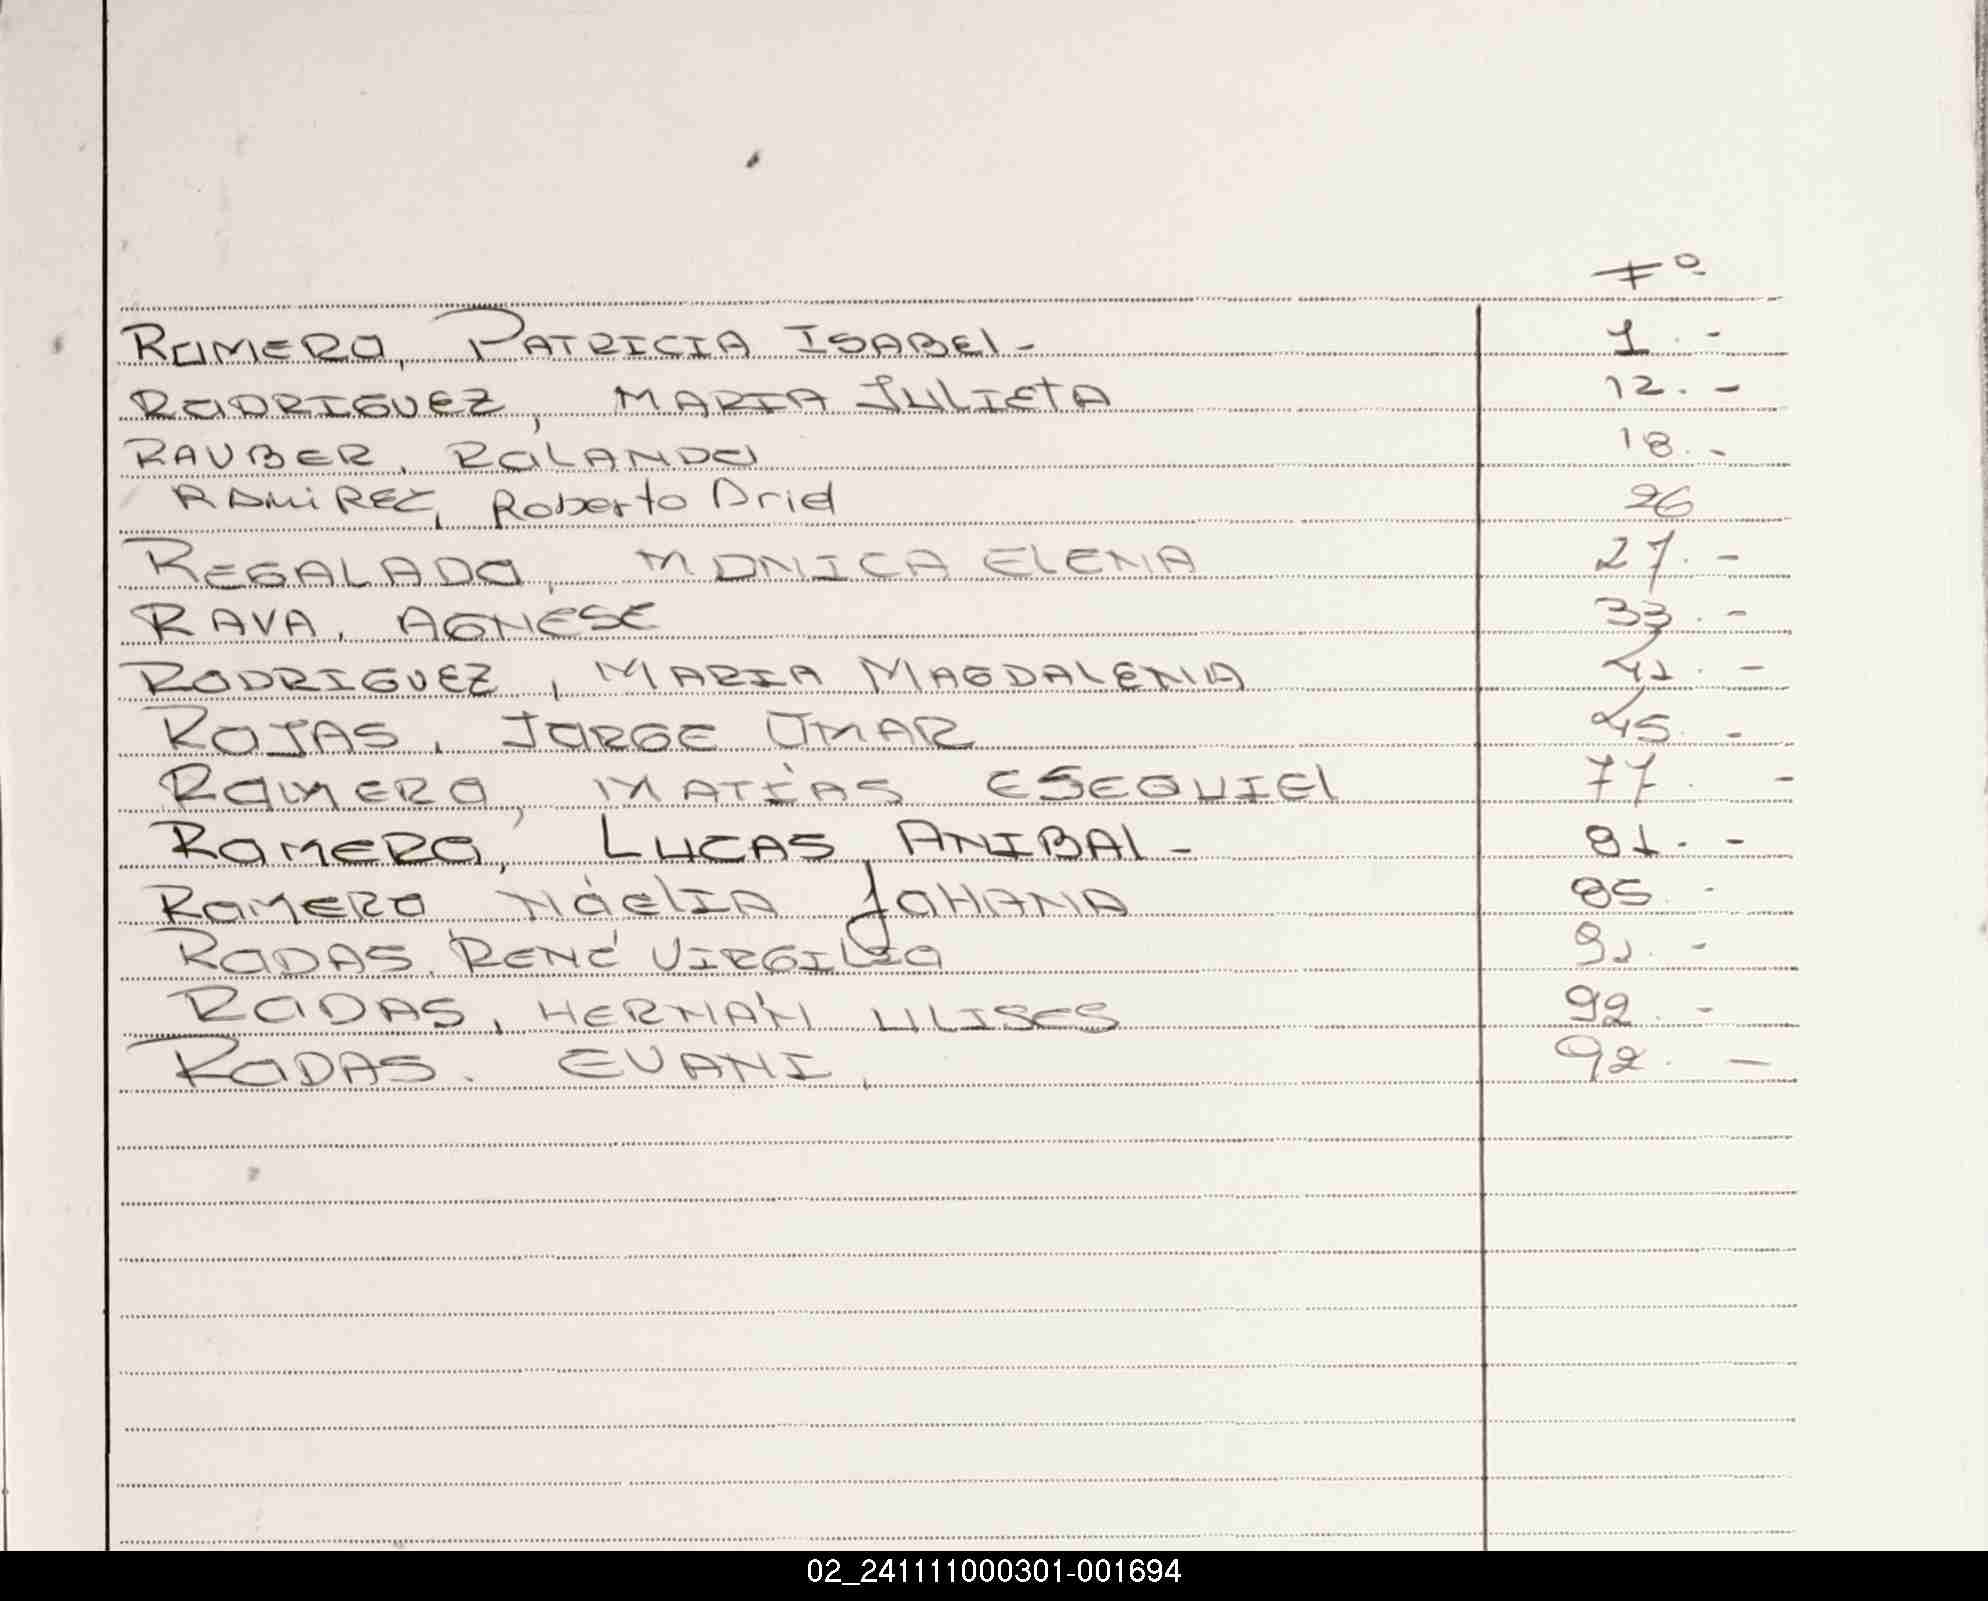 Fº
ROMERO, PATRICIA ISABEL - 1. -
RODRIGUEZ, MARIA JULIETA 12. -
RAUBER, ROLANDO 18. -
RAMIREZ, Roberto Ariel 26
REGALADO, MONICA ELENA 27. -
RAVA, AGNESE 33. -
RODRIGUEZ, MARIA MAGDALENA 41. -
ROJAS, JORGE OMAR 45. -
ROMERO, MATÍAS ESEQUIEL 77. -
ROMERO, LUCAS ANIBAL - 81. -
ROMERO NOELIA JOHANA 85. -
RODAS, RENÉ VIRGILIO 91. -
RODAS, HERNÁN ULISES 92. -
RODAS. EVANI, 92. -
02_241111000301-001694